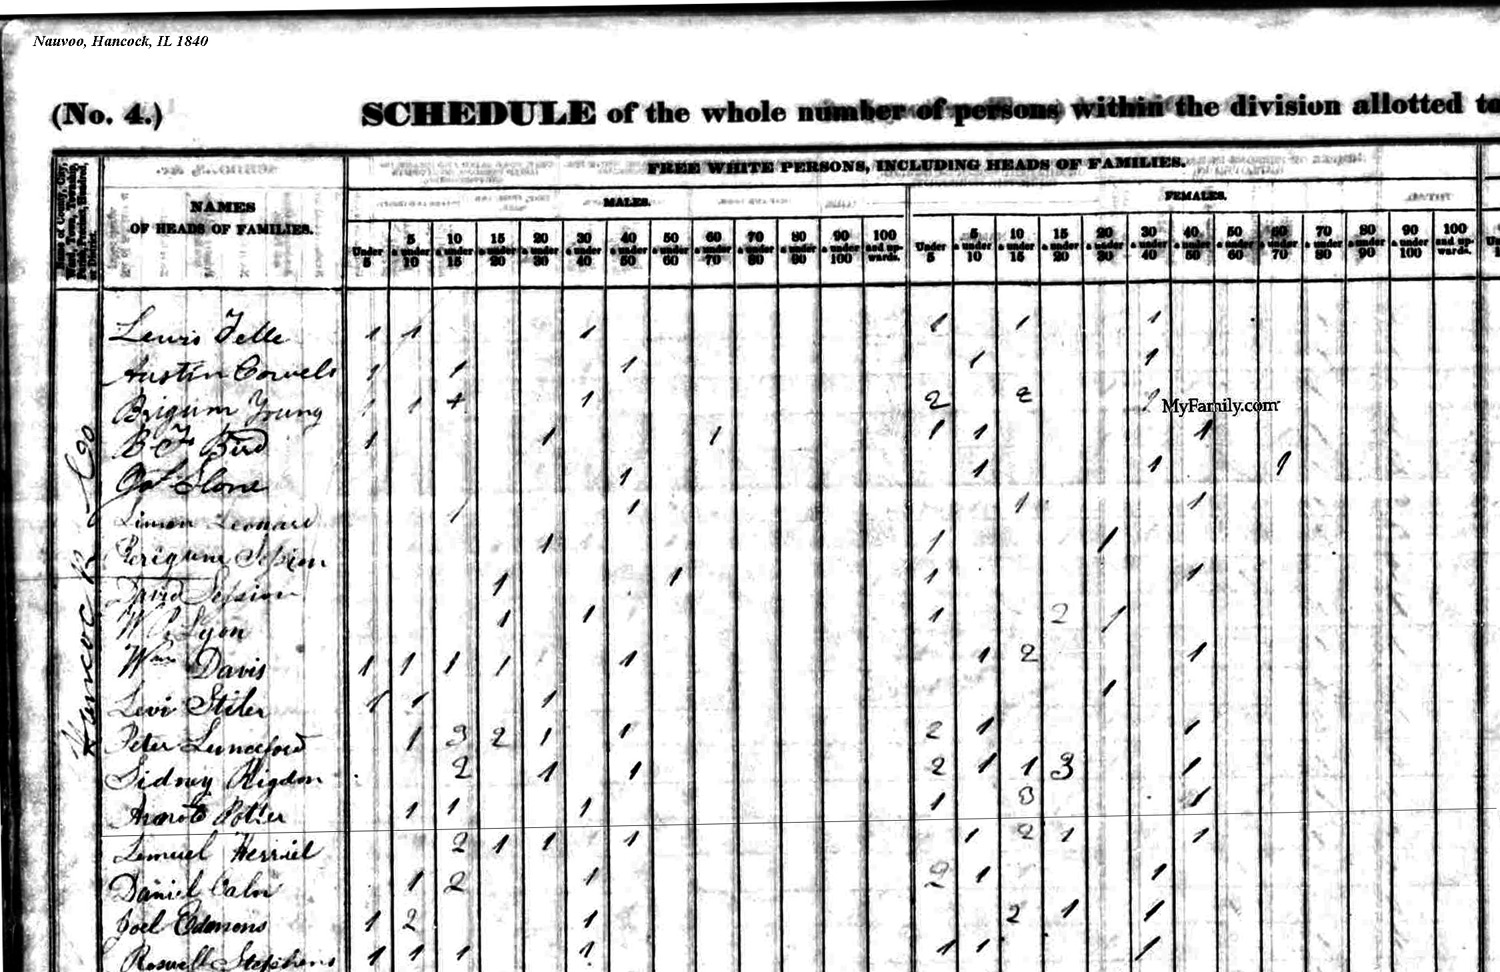 Nauvoo, Hancock, IL 1840
(No. 4.) SCHEDULE of the whole number of persons within the division allotted to
FREE WHITE PERSONS, INCLUDING HEADS OF FAMILIES.
NAMES
OF HEADS OF FAMILIES.
MALES. FEMALES.
Under 5 5 & under 10 10 & under 15 15 & under 20 20 & under 30 30 & under 40 40 & under 50 50 & under 60 60 & under 70 70 & under 80 80 & under 90 90 & under 100 100 and upwards. Under 5 5 & under 10 10 & under 15 15 & under 20 20 & under 30 30 & under 40 40 & under 50 50 & under 60 60 & under 70 70 & under 80 80 & under 90 90 & under 100 100 and upwards.
Lewis 1 1 1 1 1 1
Austin Cowels 1 1 1 1 1
Brigum Young 1 1 1 2 2
MyFamily.com
B F Bird 1 1 1 1 1 1
1 1 1 1
Leonard 1 1 1 1
Perigune Session 1 1 1
David Session 1 1 1 1
Lyon 1 1 1 2 1
Wm Davis 1 1 1 1 1 1 2 1
Levi Stiler 1 1 1 1
Peter Lunceford 1 3 2 1 1 2 1 1
Sidney Rigdon 2 1 1 2 1 1 3 1
Potter 1 1 1 1 3 1
Lemuel Herriel 2 1 1 1 1 2 1 1
Daniel 1 2 1 2 1 1
Joel Edmons 1 2 1 2 1 1
Roswell Stephens 1 1 1 1 1 1 1
Hancock Co